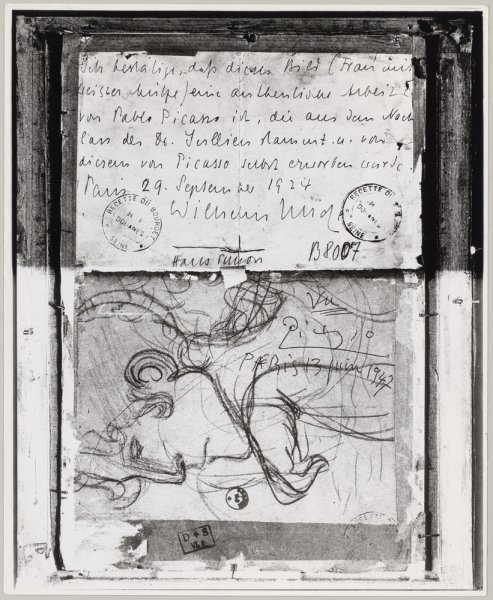 Ich bestätige, daß dieses Bild (Frau mit
weisser Mütze) eine authentische Arbeit
von Pablo Picasso ist, die aus dem Nach
lass des Dr. Jullien stammt u. von
diesem von Picasso selbst erworben wurde
Paris 29. September 1924
Wilhelm Uhde
RECETTE DU BOURGET
DOUANES
SEINE
RECETTE DU
DOUANES
SEINE
Hans
B8007
Vu
Picasso
Paris juin 1947
D + S